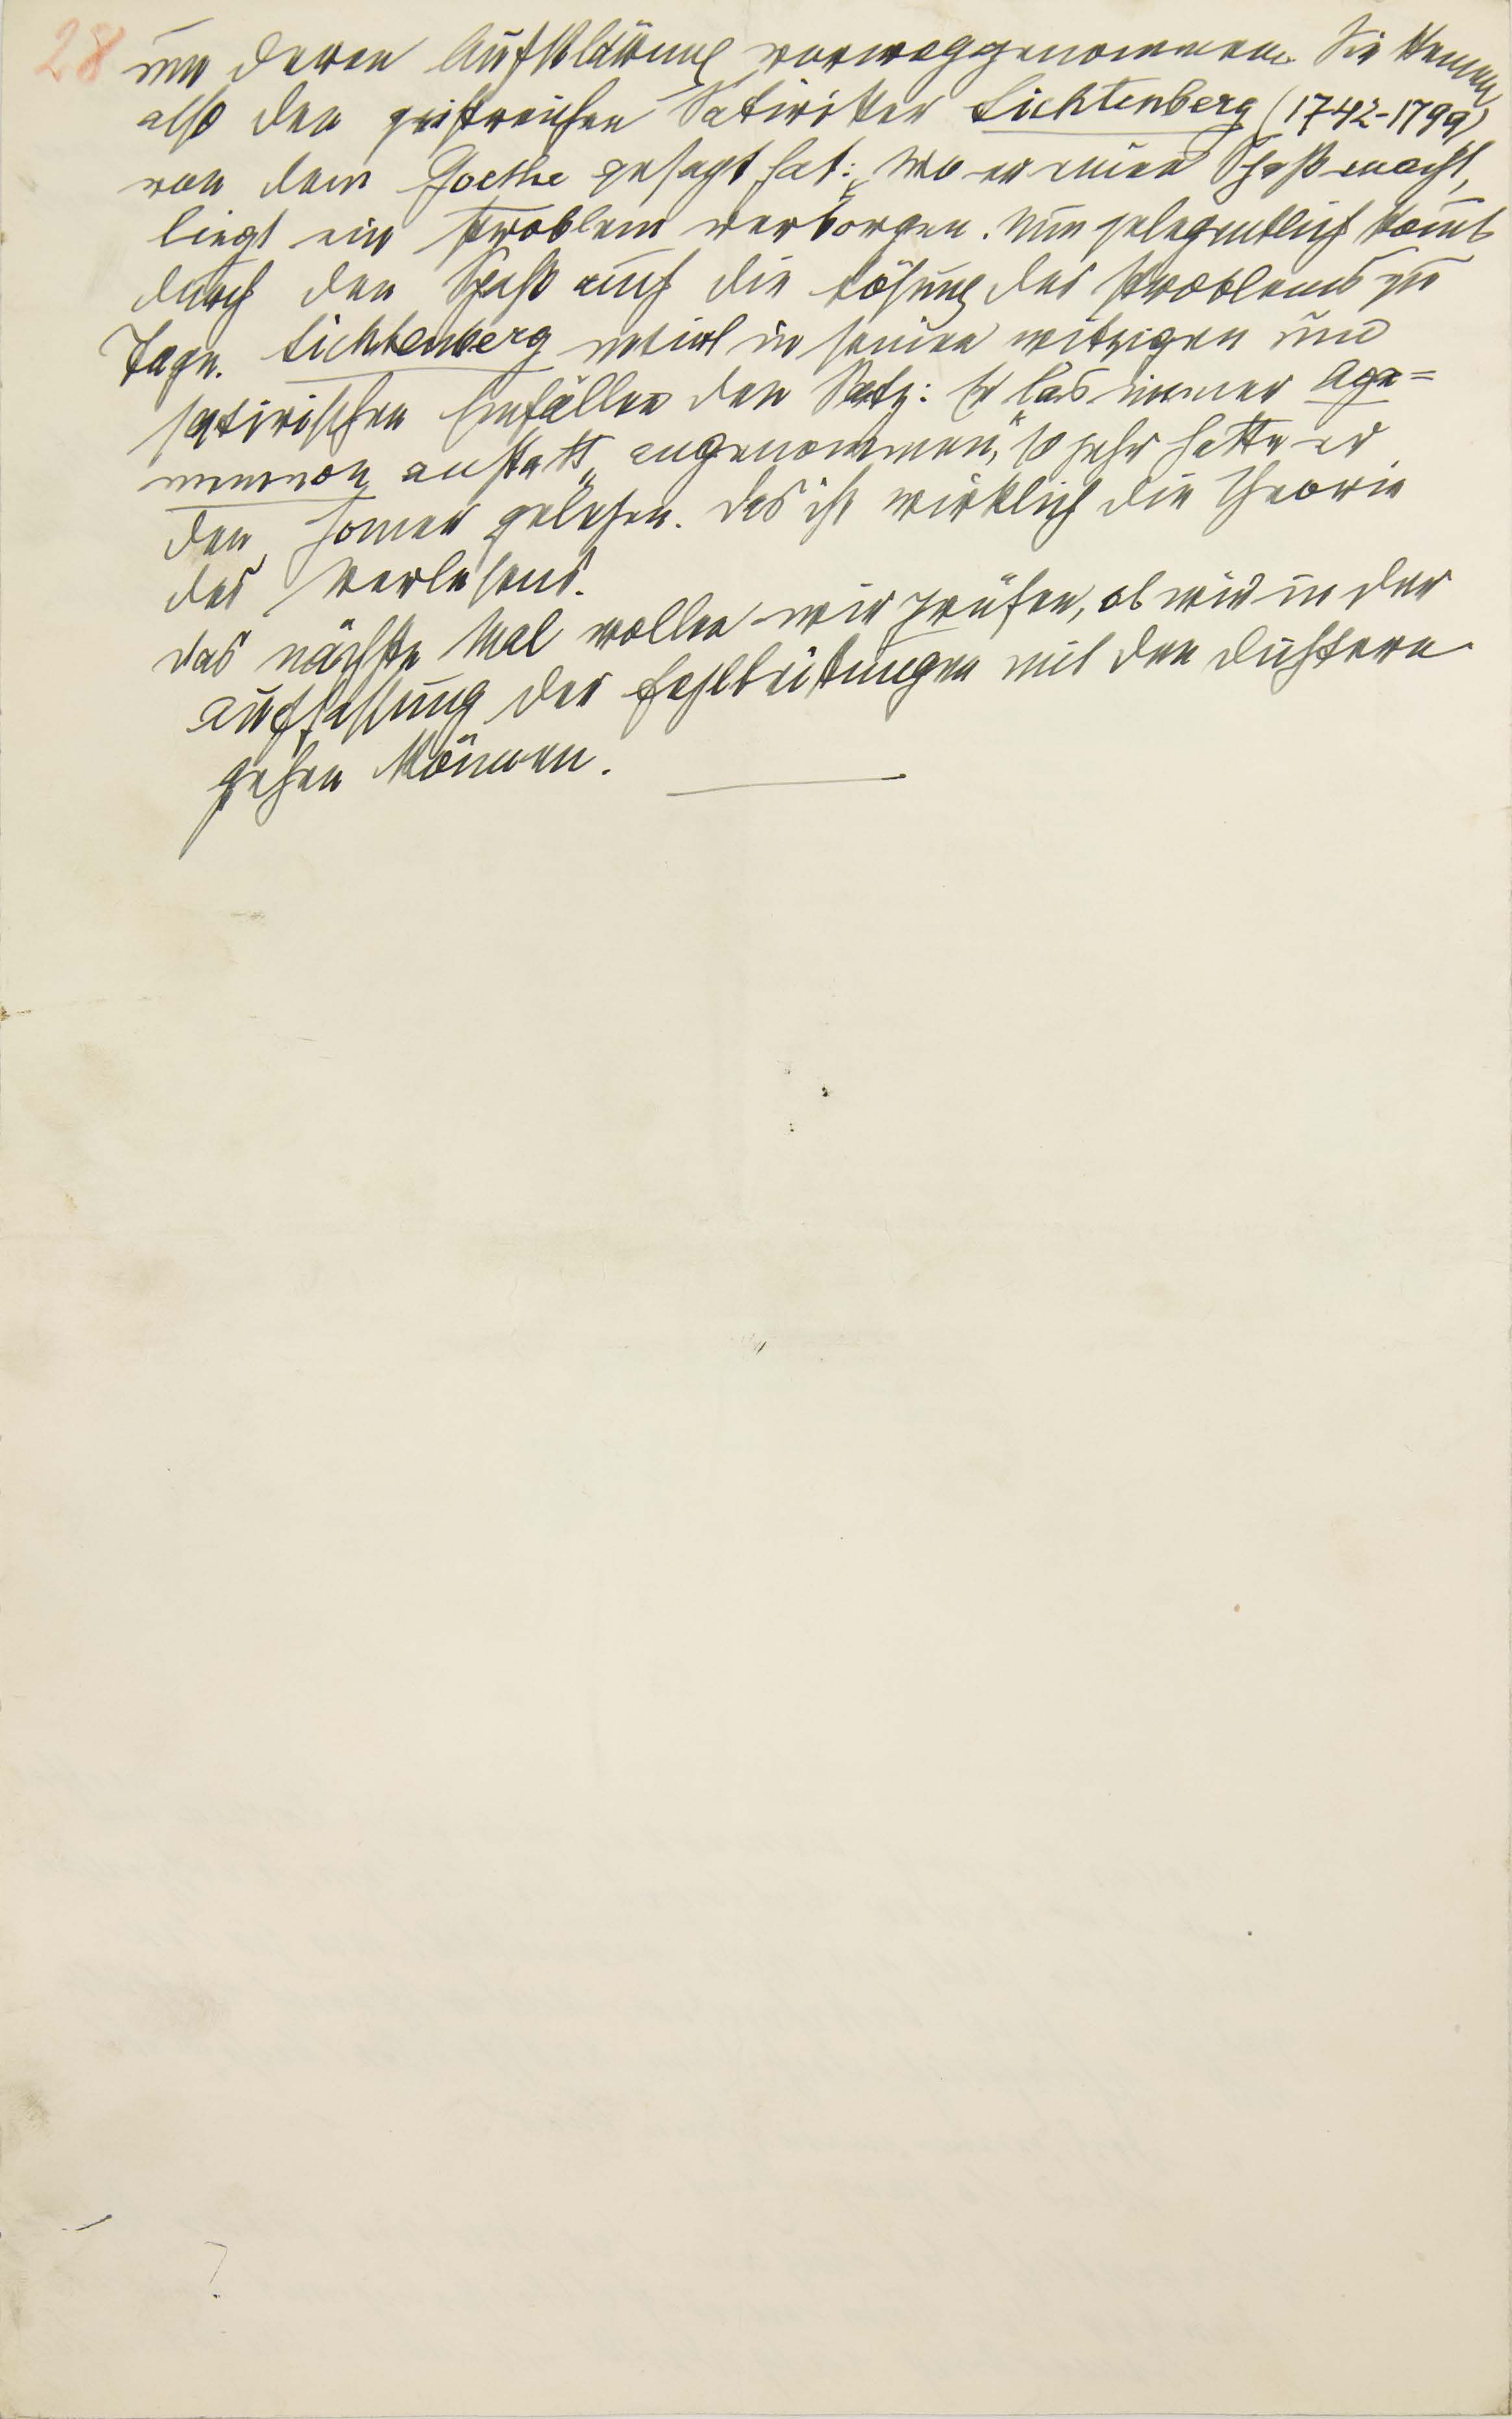 28 uns deren Aufklärung vorweggenommen. Sie kennen
also den geistreichen Satiriker Lichtenberg (1742-1799)
von dem Goethe gesagt hat: „Wo er einen Spaß macht,
liegt ein Problem verborgen. Nun gelegentlich kom̅t
durch den Spaß auch die Lösung des Problems zu
Tage. Lichtenberg notiert in seinen witzigen und
satirischen Einfällen den Satz: Er las immer Aga=
memnon anstatt „angenommen", so sehr hatte er
den Homer gelesen. Das ist wirklich die Theorie
des Verlesens.
Das nächste Mal wollen wir prüfen, ob wir in der
Auffassung der Fehlleistungen mit den Dichtern
gehen können.